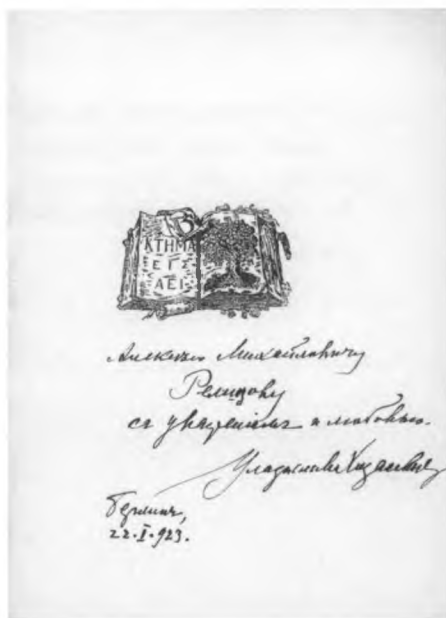 ΚΤΗΜΑ
ΕΙΣ
ΑΕΙ
Алексѣю Михайловичу
Ремизову
съ уваженіемъ и любовью.
Владиславъ Ходасевичъ
Берлинъ,
22.I.923.